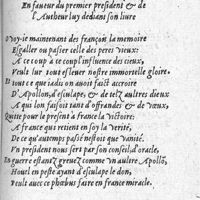 En faueur du premier president & de
l'Autheur luy dediant son liure
Voy-ie maintenant des françois la memoire
Esgaller ou passer celle des peres vieux:
A ce coup à ce coup l'influence des cieux,
Veult sur tout esleuer nostre immortelle gloire.
Et tout ce que iadis on auoit faict accroire
D'Apollon, d'esculape, & de telz aultres dieux
A qui lon faisoit tant d'offrandes & de vœux,
Quite pour le present à france la victoire:
A france qui retient en soy la verité,
De ce qu'autemps passé n'estoit que vanité.
Vn president nous sert par son conseil, d'oracle,
En guerre estant grenez comme vn aultre Apollõ,
Houel en peste ayant d'esculape le don,
Veult auec ce phœbus faire en france miracle.